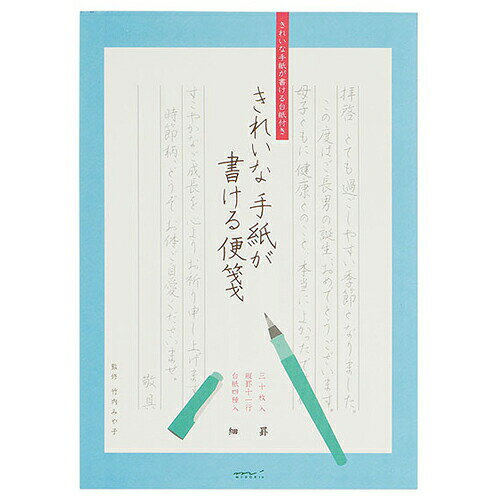 きれいな手紙が書ける台紙付き
拝啓 とても過ごしやすい季節となりました。
この度はご長男の誕生、おめでとうございます。
母子ともに健康とのこと、本当によかったで
きれいな手紙が
書ける便箋
すこやかなご成長を心よりお祈り申し上げま
時節柄、どうぞお体ご自愛くださいませ。
敬具
三十枚入
縦罫十二行
台紙四種入
細罫
監修 竹内みや子
MIDORI